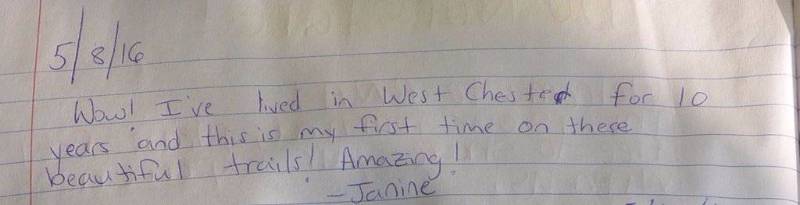 5/8/16
Wow! I've lived in West Chester for 10
years and this is my first time on these
beautiful trails! Amazing!
- Janine